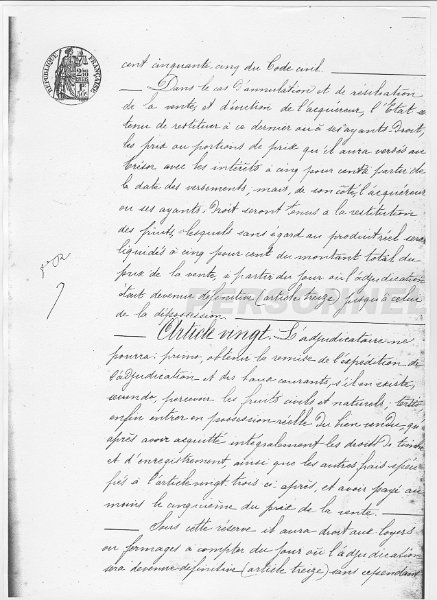 RÉPUBLIQUE FRANÇAISE
cent cinquante cinq du Code civil.
Dans le cas d'annulation et de résiliation
de la vente, et d'éviction de l'acquéreur, l'Etat se
tenu de restituer à ce dernier ou à ses ayants Droit,
les prix ou portions de prix qu'il aura versés au
Trésor avec les intérêts à cinq pour cent à partir de
la date des versements, mais, de son côté, l'acquéreur
ou ses ayants Droit seront tenus à la restitution
des fruits, lesquels sans égard au produit réel seront
liquidés à cinq pour cent du montant total du
prix de la vente, à partir du jour où l'adjudication
était devenue définitive (article treize) jusqu'à celui
de la dépossession.
PERSONNEL
Article vingt. L'adjudicataire ne
pourra: primo, obtenir la remise de l'expédition de
l'adjudication et des baux courants, s'il en existe,
secundo, percevoir les fruits civils et naturels,
enfin entrer en possession réelle du bien vendu, qu'
après avoir acquitté intégralement les droits de timbre
et d'enregistrement, ainsi que les autres frais spéci-
fiés à l'article vingt trois ci-après, et avoir payé au
moins le cinquième du prix de la vente.
Sous cette réserve il aura droit aux loyers
ou fermages à compter du jour où l'adjudication
sera devenue définitive (article treize) sans cependant